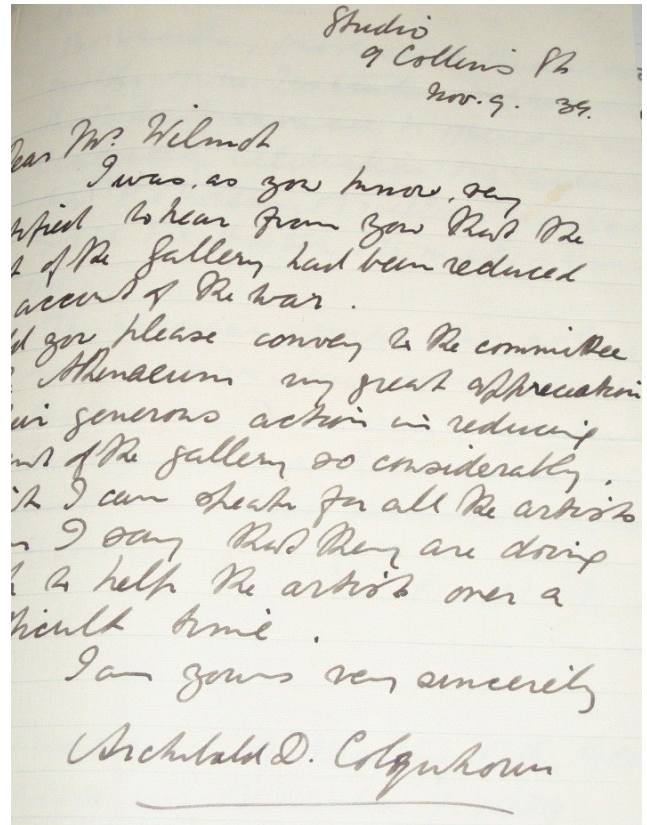 Studio
9 Collins St
Nov. 9. 39.
ear Mr. Wilmot
I was, as you know, very
tified to hear from you that the
t of the Gallery had been reduced
account of the war.
d you please convey to the committee
Athenaeum my great appreciation
eir generous action in reducing
ent of the gallery so considerably.
I can speak for all the artists
n I say that they are doing
h to help the artist over a
ficult time.
I am yours very sincerely
Archibald D. Colquhoun